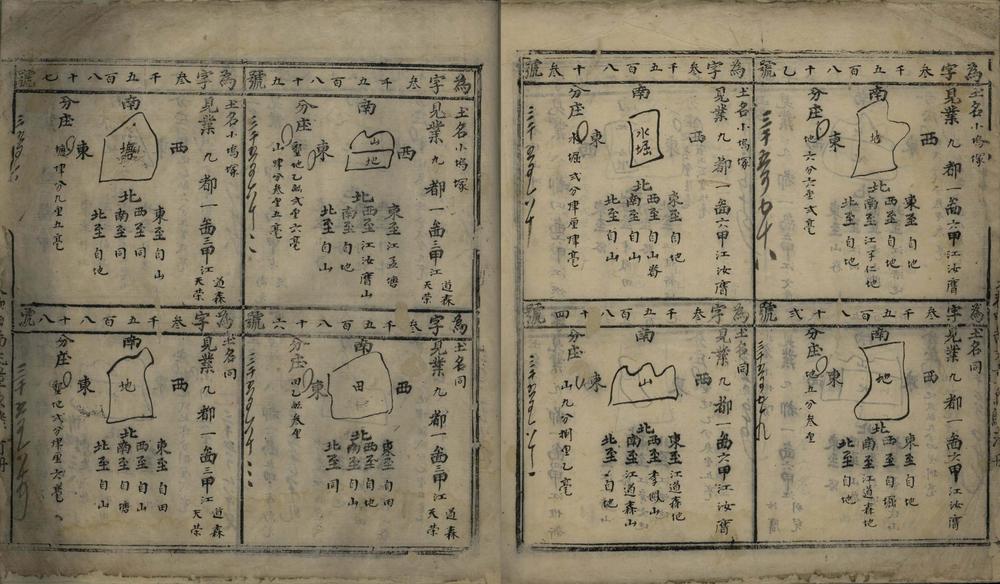 為字叁千五百八十乙號
土名小塢塚
見業九都一啚六甲江汝膺
南
西
東
北
東至自地
西至自地
南至江子仁地
北至自地
分座
地六分六厘弍毫
為字叁千五百八十弍號
土名同
見業九都一啚六甲江汝膺
南
西
地
東
北
東至自地
西至自堀
南至江道森地
北至自地
分座
地五分叁厘
為字叁千五百八十叁號
土名小塢塚
見業九都一啚六甲江汝膺
南
西
水堀
東
北
東至自地
西至自山脊
南至自山
北至自山
分座
水堀弍分肆厘肆毫
為字叁千五百八十四號
土名同
見業九都一啚六甲江汝膺
南
西
山
東
北
東至江道森地
西至李鳳山
南至江道森山
北至自地
分座
山九分捌厘乙毫
為字叁千五百八十五號
土名小塢塚
見業九都一啚三甲江道森天荣
南
西
山
地
東
北
東至江孟塘
西至江汝膺山
南至自地
北至自山
分座
山肆分叁厘五毫
為字叁千五百八十六號
土名同
見業九都一啚三甲江道森天荣
南
西
田
東
北
東至自田
西至自地
南至自山
北至同
分座
為字叁千五百八十七號
土名小塢塚
見業九都一啚三甲江道森天荣
南
西
塘
東
北
東至自山
西至同
南至同
北至自地
分座
塘肆分九厘五毫
為字叁千五百八十八號
土名同
見業九都一啚三甲江道森天荣
南
西
地
東
北
東至自田
西至自山
南至自塘
北至自山
分座